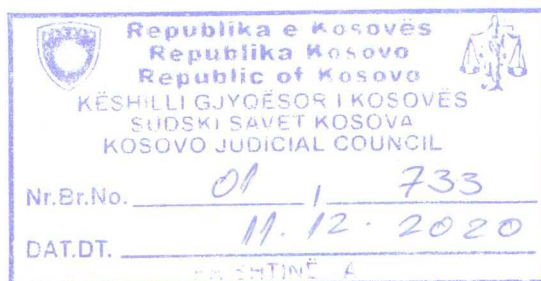 Republika e Kosovës
Republika Kosovo
Republic of Kosovo
KËSHILLI GJYQËSOR I KOSOVËS
SUDSKI SAVET KOSOVA
KOSOVO JUDICIAL COUNCIL
Nr.Br.No. 01 / 733
DAT.DT. 11.12.2020